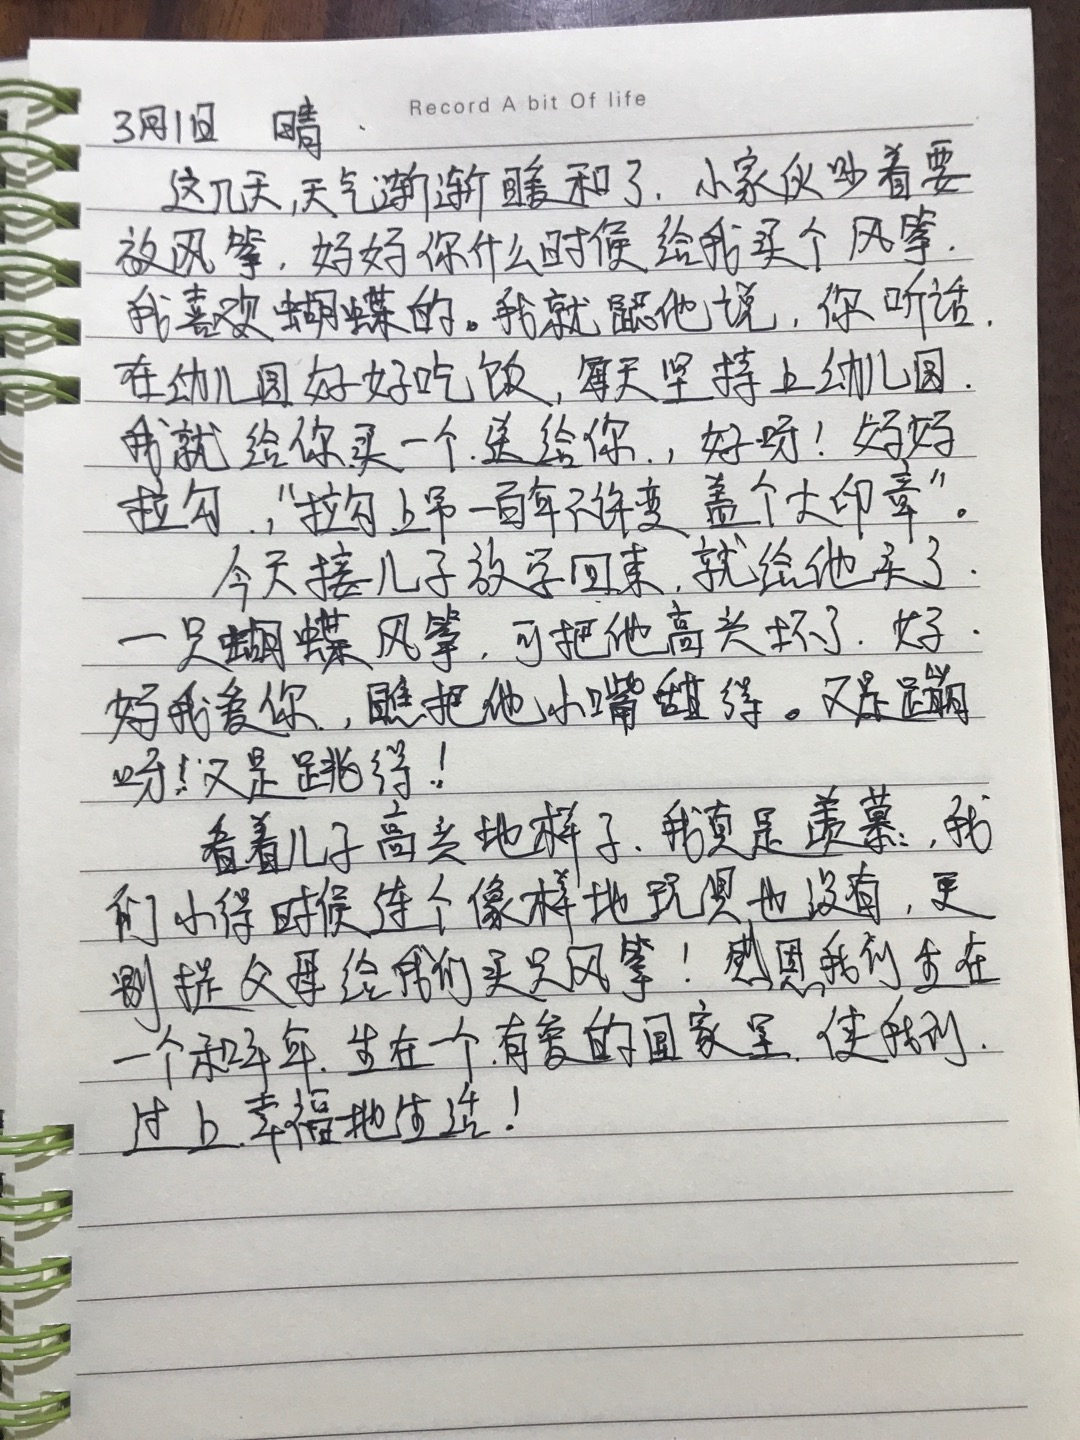 Record A bit Of life
3月1日 晴
这几天,天气渐渐暖和了.小家伙吵着要
放风筝.好好你什么时候给我买个风筝.
我喜欢蝴蝶的。我就跟他说,你听话.
在幼儿园好好吃饭,每天坚持上幼儿园.
我就给你买一个送给你.,好呀!好好
拉勾.,“拉勾上吊一百年不许变 盖个大印章”。
今天接儿子放学回来.就给他买了.
一只蝴蝶风筝,可把他高兴坏了.好.
好我爱你.,瞧把他小嘴甜得。又是蹦
呀!又是跳得!
看着儿子高兴地样子.我真是羡慕.,我
们小得时候连个像样地玩具也没有,更
别提父母给我们买只风筝!感恩我们生在
一个和平年.生在一个.有爱的国家里.使我们.
过上.幸福地生活!